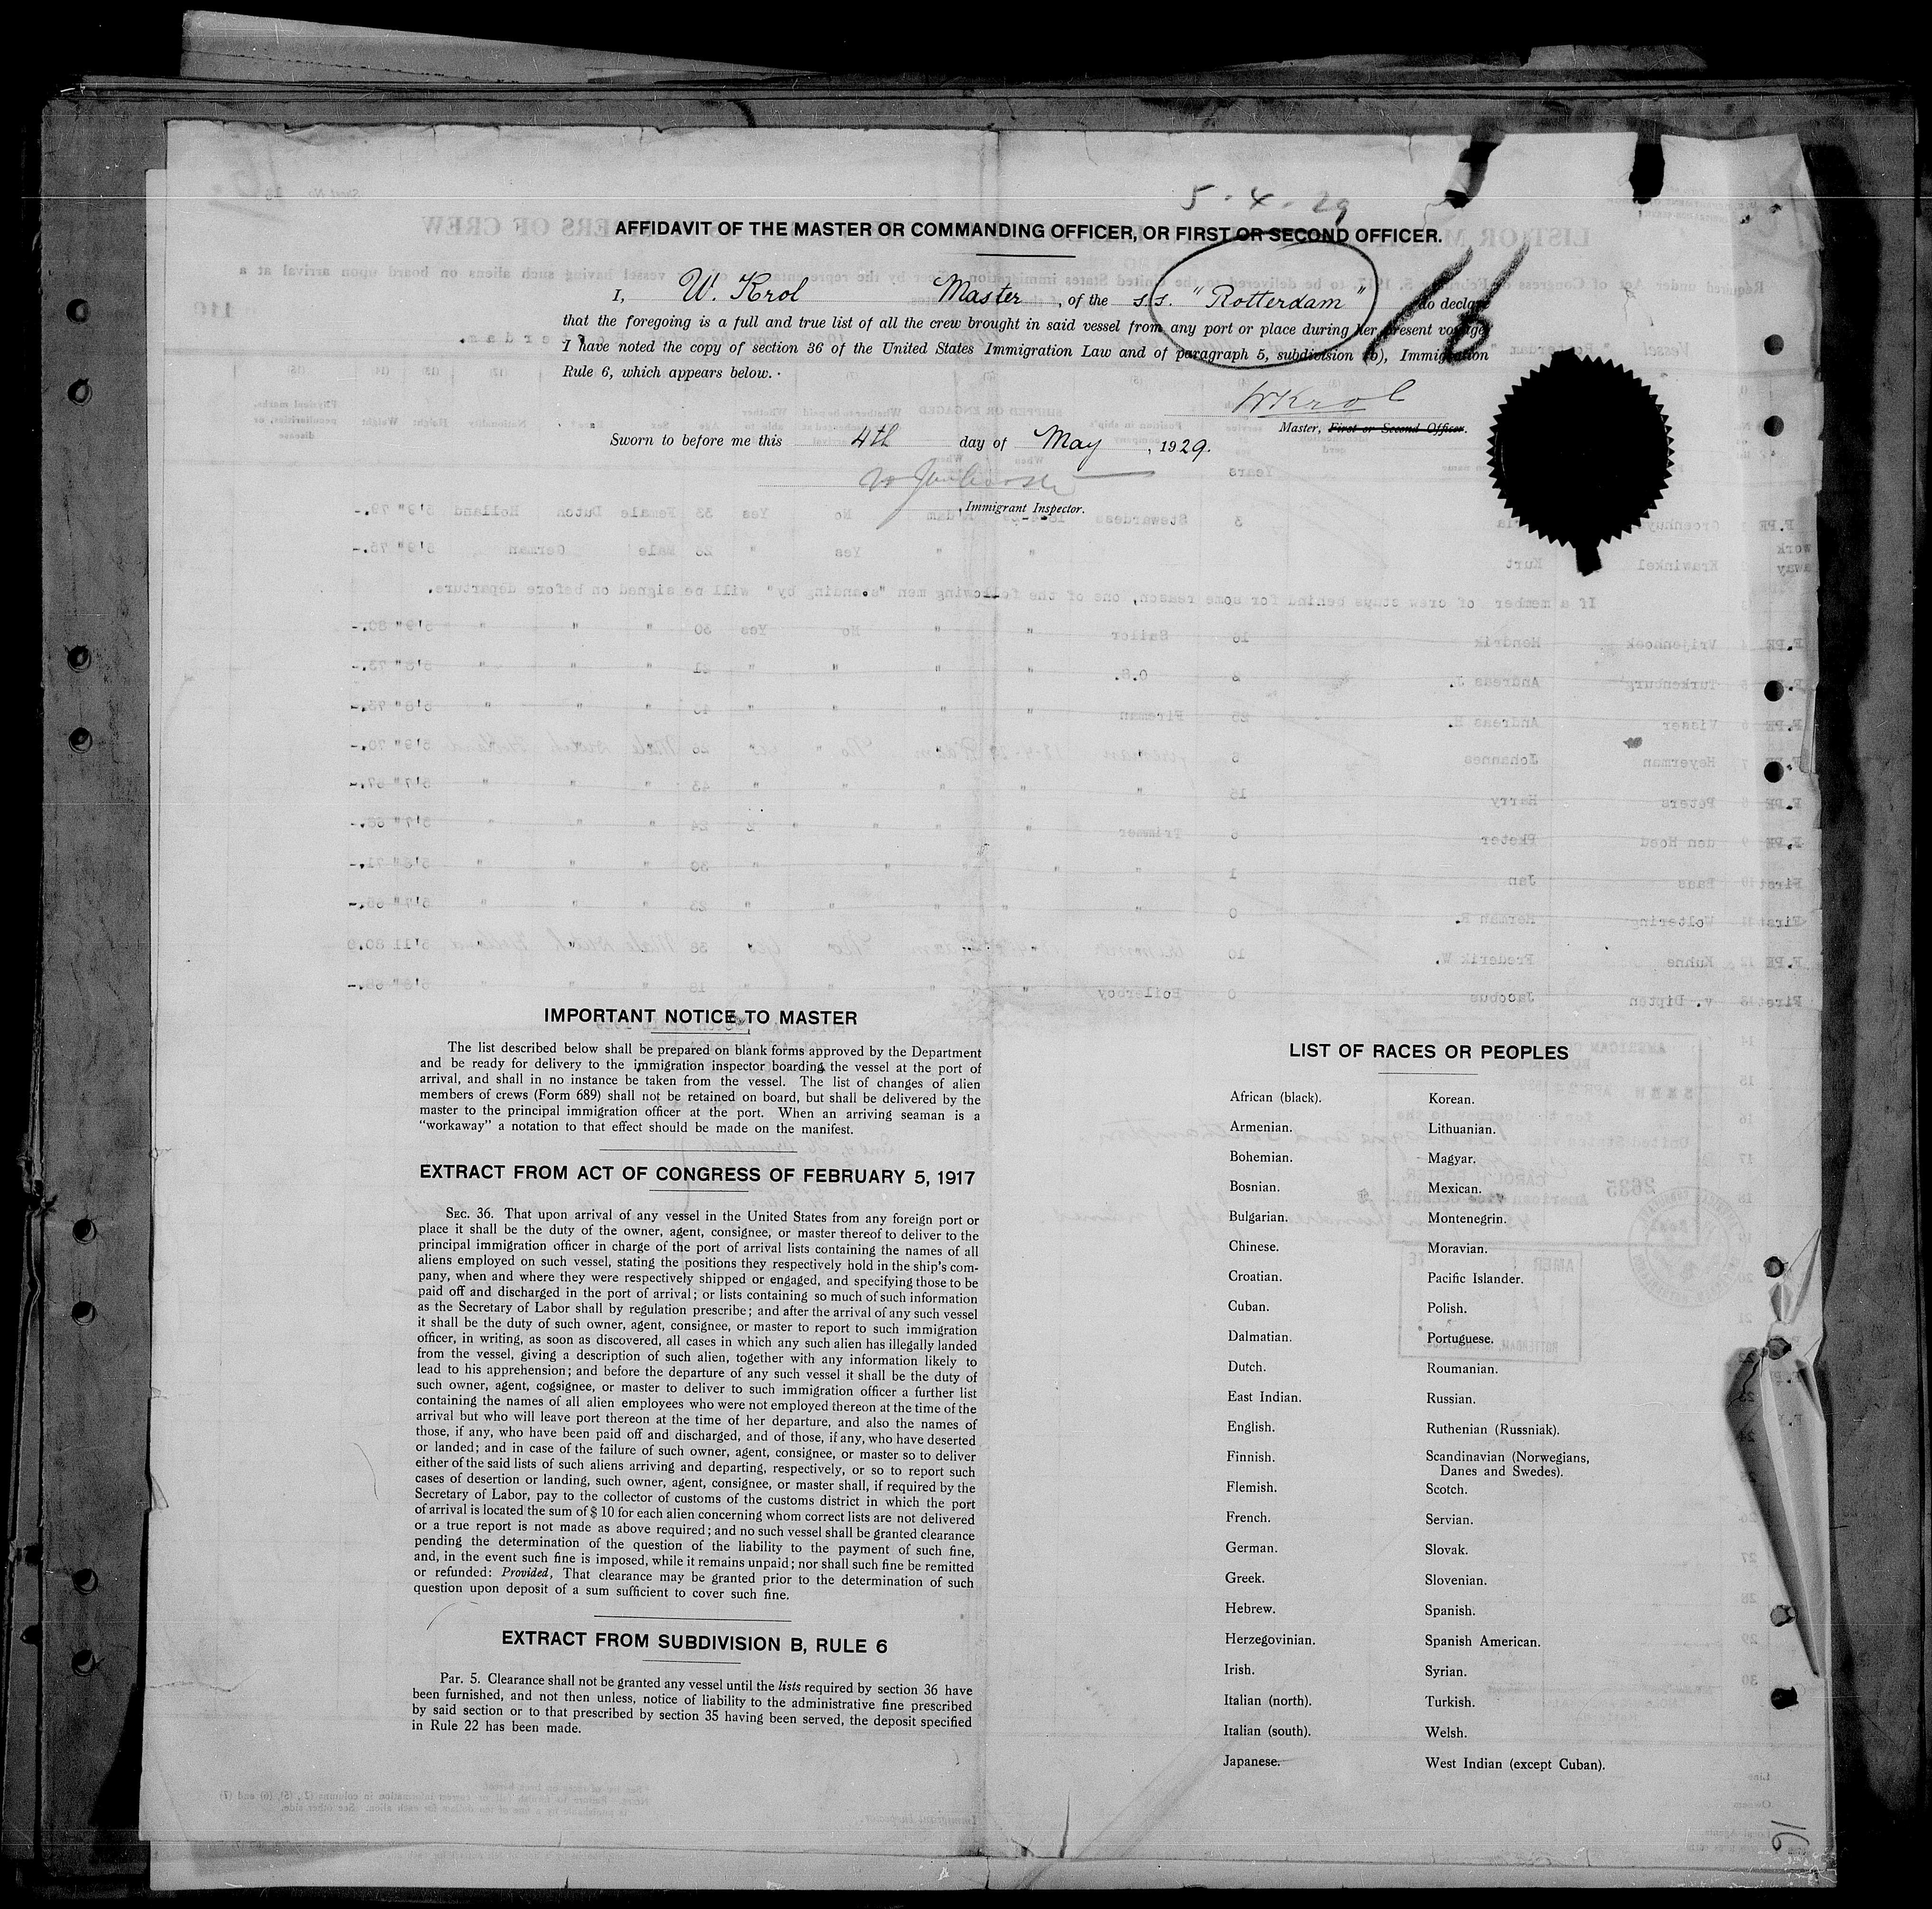 5-4-29
AFFIDAVIT OF THE MASTER OR COMMANDING OFFICER, OR FIRST OR SECOND OFFICER.
I, W. Krol Master, of the s.s. "Rotterdam" do declare
16
that the foregoing is a full and true list of all the crew brought in said vessel from any port or place during her present voyage
I have noted the copy of section 36 of the United States Immigration Law and of paragraph 5, subdivision (b), Immigration
Rule 6, which appears below.
WKrol
Master, First or Second Officer.
Sworn to before me this 4th day of May, 1929.
, Immigrant Inspector.
IMPORTANT NOTICE TO MASTER
The list described below shall be prepared on blank forms approved by the Department
and be ready for delivery to the immigration inspector boarding the vessel at the port of
arrival, and shall in no instance be taken from the vessel. The list of changes of alien
members of crews (Form 689) shall not be retained on board, but shall be delivered by the
master to the principal immigration officer at the port. When an arriving seaman is a
"workaway" a notation to that effect should be made on the manifest.
EXTRACT FROM ACT OF CONGRESS OF FEBRUARY 5, 1917
SEC. 36. That upon arrival of any vessel in the United States from any foreign port or
place it shall be the duty of the owner, agent, consignee, or master thereof to deliver to the
principal immigration officer in charge of the port of arrival lists containing the names of all
aliens employed on such vessel, stating the positions they respectively hold in the ship's com-
pany, when and where they were respectively shipped or engaged, and specifying those to be
paid off and discharged in the port of arrival; or lists containing so much of such information
as the Secretary of Labor shall by regulation prescribe; and after the arrival of any such vessel
it shall be the duty of such owner, agent, consignee, or master to report to such immigration
officer, in writing, as soon as discovered, all cases in which any such alien has illegally landed
from the vessel, giving a description of such alien, together with any information likely to
lead to his apprehension; and before the departure of any such vessel it shall be the duty of
such owner, agent, cogsignee, or master to deliver to such immigration officer a further list
containing the names of all alien employees who were not employed thereon at the time of the
arrival but who will leave port thereon at the time of her departure, and also the names of
those, if any, who have been paid off and discharged, and of those, if any, who have deserted
or landed; and in case of the failure of such owner, agent, consignee, or master so to deliver
either of the said lists of such aliens arriving and departing, respectively, or so to report such
cases of desertion or landing, such owner, agent, consignee, or master shall, if required by the
Secretary of Labor, pay to the collector of customs of the customs district in which the port
of arrival is located the sum of $ 10 for each alien concerning whom correct lists are not delivered
or a true report is not made as above required; and no such vessel shall be granted clearance
pending the determination of the question of the liability to the payment of such fine,
and, in the event such fine is imposed, while it remains unpaid; nor shall such fine be remitted
or refunded: Provided, That clearance may be granted prior to the determination of such
question upon deposit of a sum sufficient to cover such fine.
EXTRACT FROM SUBDIVISION B, RULE 6
Par. 5. Clearance shall not be granted any vessel until the lists required by section 36 have
been furnished, and not then unless, notice of liability to the administrative fine prescribed
by said section or to that prescribed by section 35 having been served, the deposit specified
in Rule 22 has been made.
LIST OF RACES OR PEOPLES
African (black).
Armenian.
Bohemian.
Bosnian.
Bulgarian.
Chinese.
Croatian.
Cuban.
Dalmatian.
Dutch.
East Indian.
English.
Finnish.
Flemish.
French.
German.
Greek.
Hebrew.
Herzegovinian.
Irish.
Italian (north).
Italian (south).
Japanese.
Korean.
Lithuanian.
Magyar.
Mexican.
Montenegrin.
Moravian.
Pacific Islander.
Polish.
Portuguese.
Roumanian.
Russian.
Ruthenian (Russniak).
Scandinavian (Norwegians,
Danes and Swedes).
Scotch.
Servian.
Slovak.
Slovenian.
Spanish.
Spanish American.
Syrian.
Turkish.
Welsh.
West Indian (except Cuban).
16